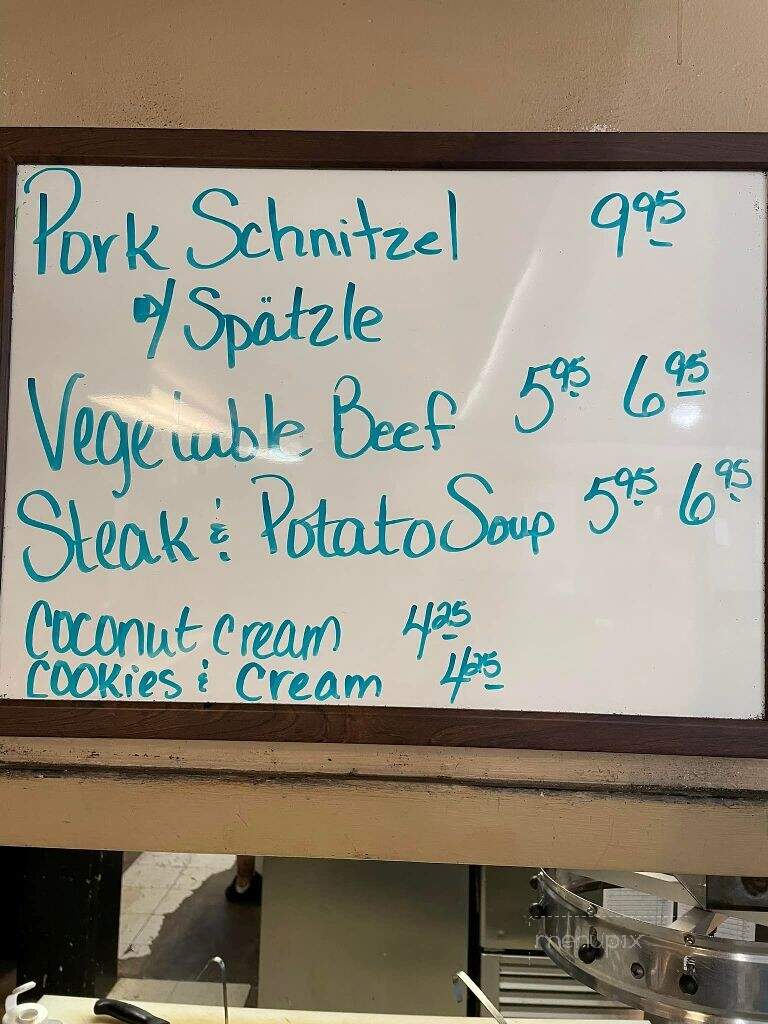 Pork Schnitzel 9.95
w/ Spätzle
Vegetable Beef 5.95 6.95
Steak & Potato Soup 5.95 6.95
Coconut Cream 4.25
Cookies & Cream 4.25
menupix